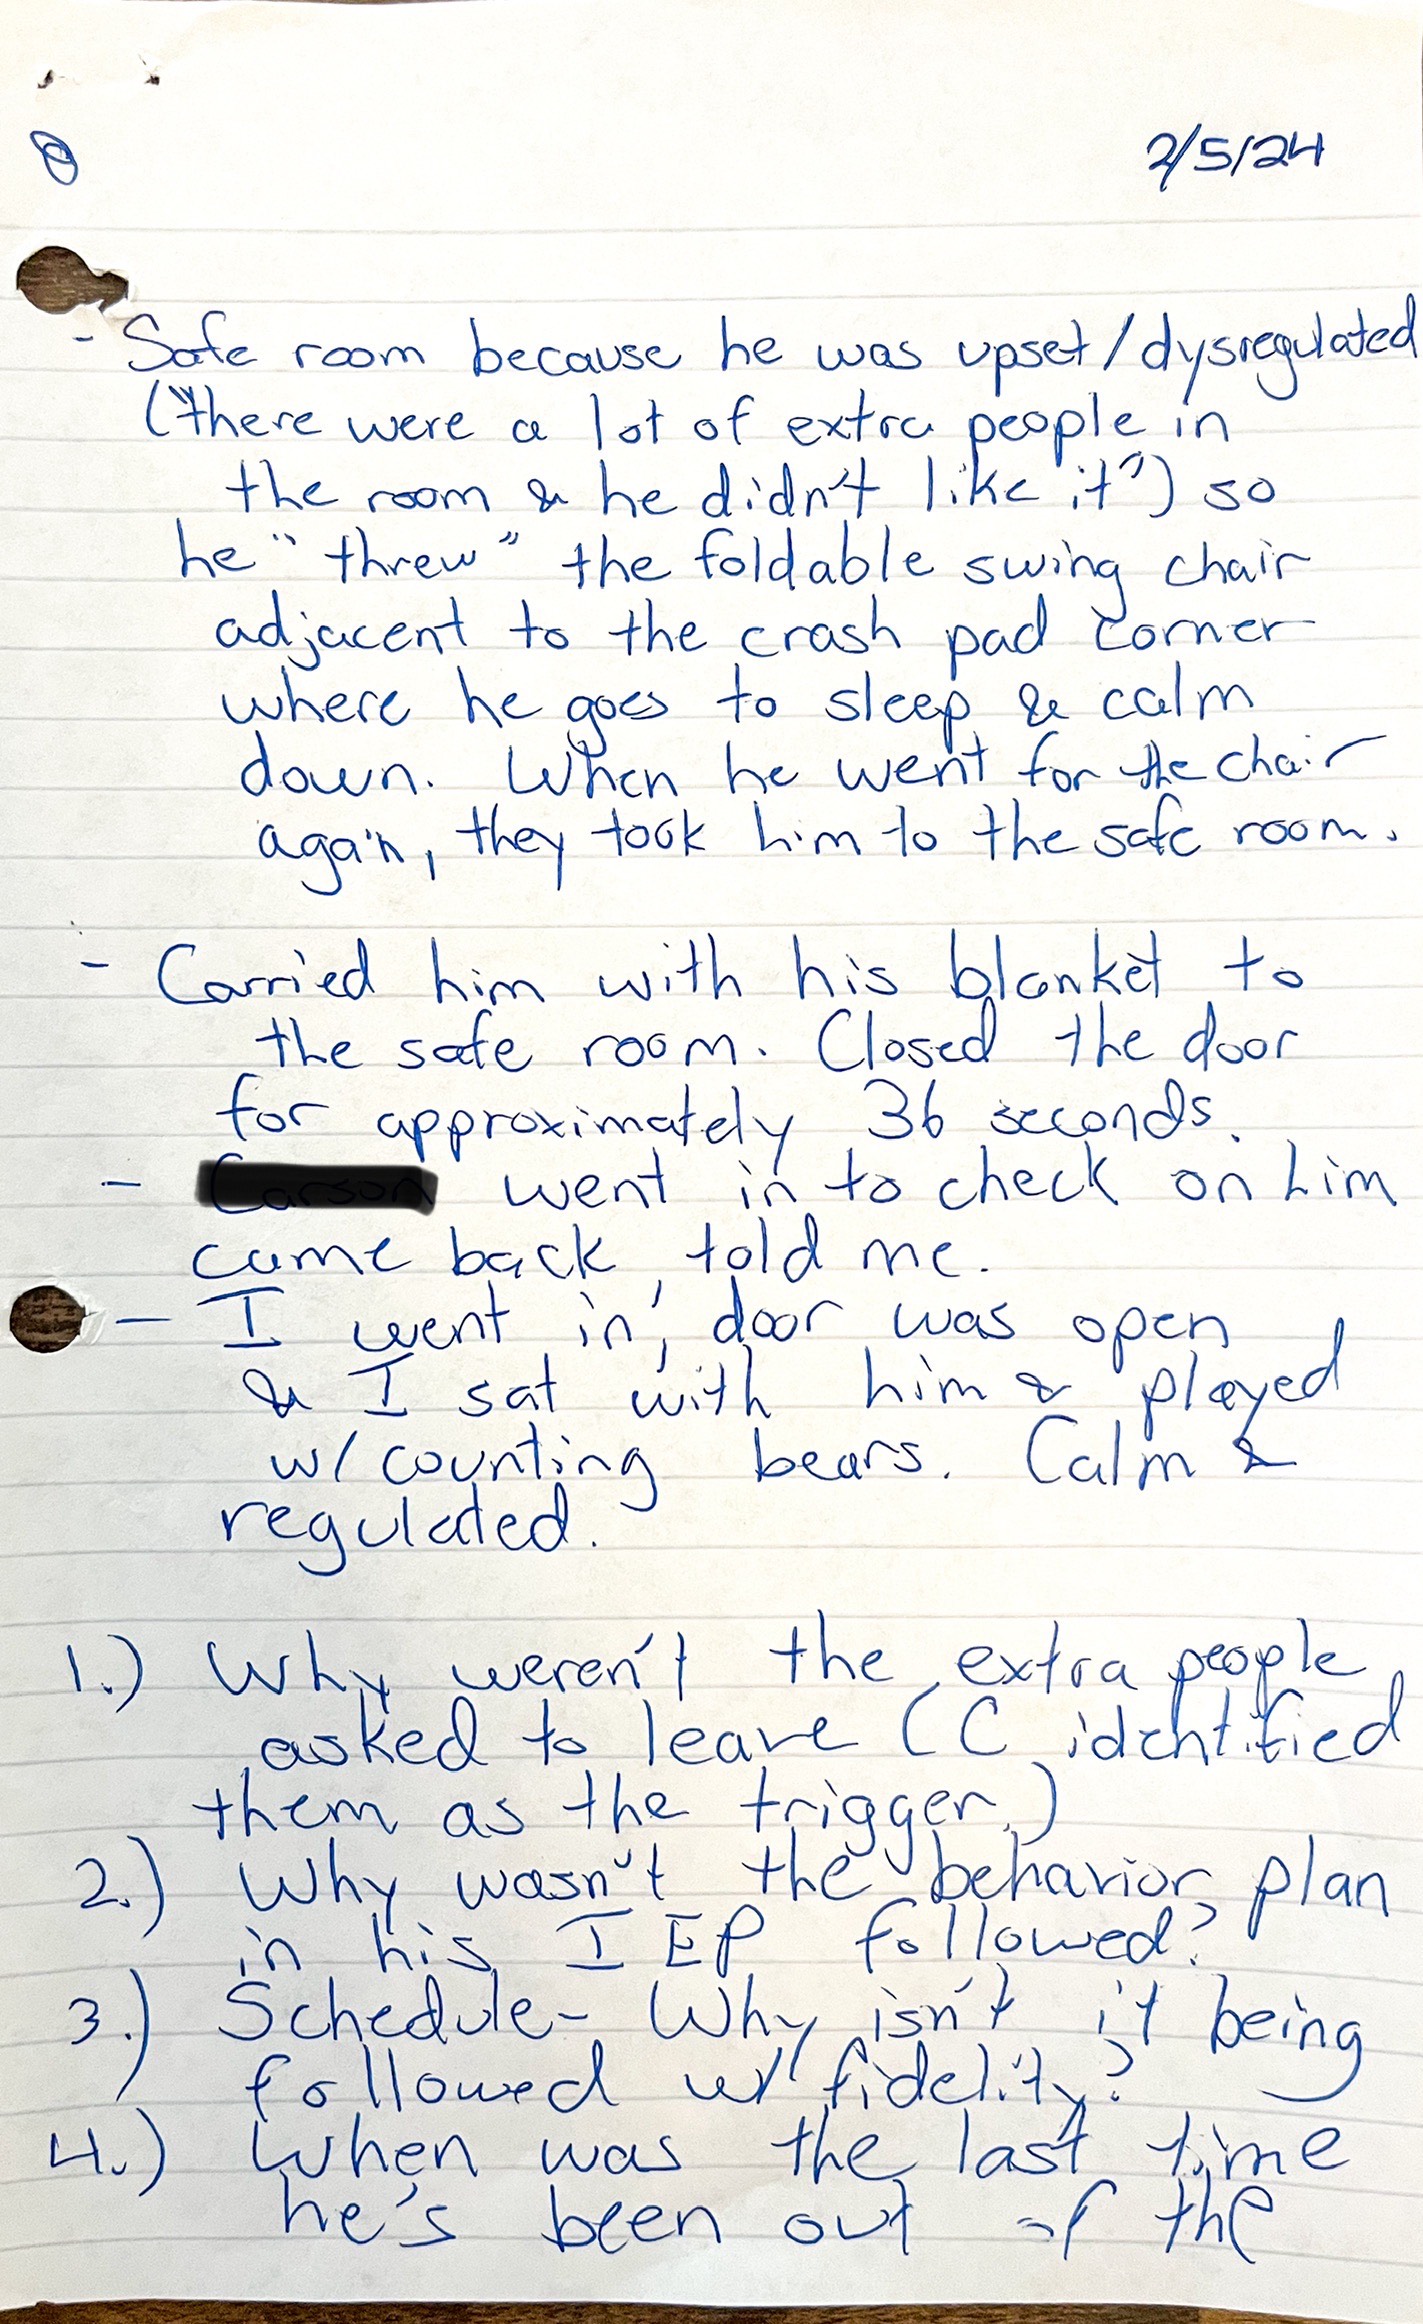 8
2/5/24
- Safe room because he was upset/dysregulated
("there were a lot of extra people in
the room & he didn't like it") so
he "threw" the foldable swing chair
adjacent to the crash pad corner
where he goes to sleep & calm
down. When he went for the chair
again, they took him to the safe room.
- Carried him with his blanket to
the safe room. Closed the door
for approximately 36 seconds.
- went in to check on him
came back, told me.
- I went in, door was open
& I sat with him & played
w/ counting bears. Calm &
regulated.
1.) Why weren't the extra people
asked to leave (C identified
them as the trigger.)
2.) Why wasn't the behavior plan
in his IEP followed?
3.) Schedule - Why isn't it being
followed w/ fidelity?
4.) When was the last time
he's been out of the